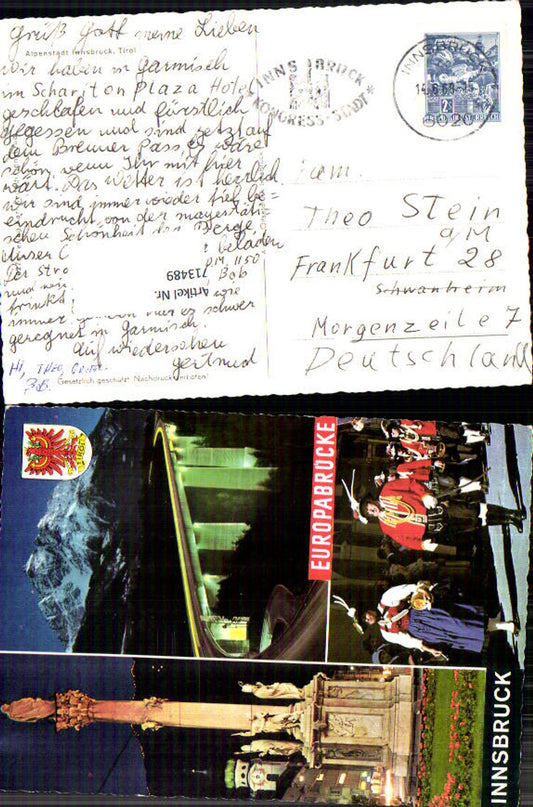 Grüß Gott meine Lieben
Alpenstadt Innsbruck, Tirol
wir haben in Garmisch
im Schariton Plaza Hotel
geschlafen und fürstlich
gegessen und sind jetzt auf
dem Brenner Pass, es wäre
schön, wenn Ihr mit hier
wärt. Das Wetter ist herrlich
wir sind immer wieder tief be=
eindruckt von der majestäti
schen Schönheit des Berge
Unser
beladen
Der Stro
DM, 1150
und
Bob
immer
nur es schwer
geregnet in Garmisch.
Auf wiedersehen
gertrud
Hi, THEO,
BOB.
Gesetzlich geschützt Nachdruck
Artikel Nr. 713489
INNSBRUCK
KONGRESS-STADT
INNSBRUCK
6020
Fam.
Theo Stein
a/M
Frankfurt 28
Schwanheim
Morgenzeile 7
Deutschland
EUROPABRÜCKE
INNSBRUCK